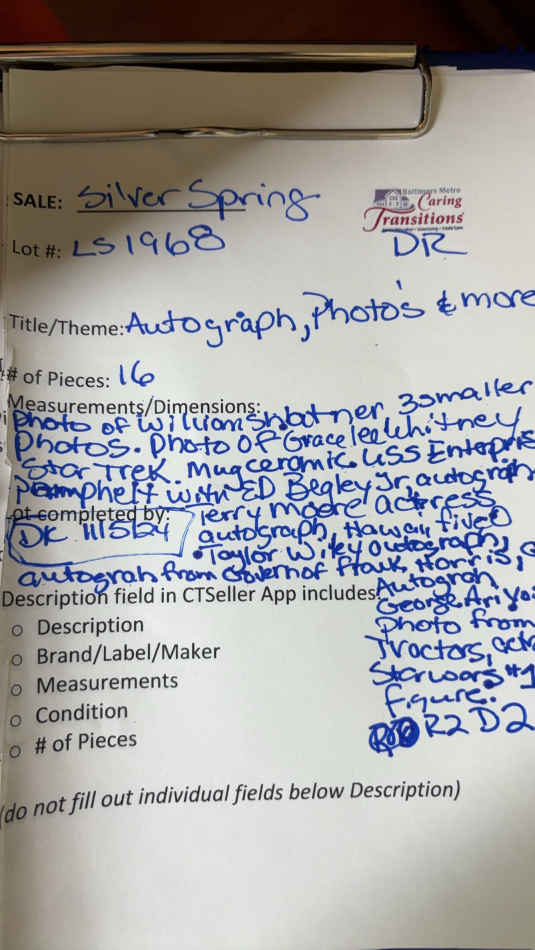 SALE: Silver Spring
Baltimore Metro
Caring
Transitions
Lot #: LS1968
DR
Title/Theme: Autograph, Photo's & more
# of Pieces: 16
Measurements/Dimensions:
Photo of William Shbatner 3 smaller
Photos. Photo of Grace lee Whitney
Star Trek. Mug ceramic. USS Enterpris
Pamphelt with ED Begley Jr, autograph
Lot completed by: Terry moore actress
DR 11/5/24 autograph, Hawaii five O
Taylor Wiley autograph,
autograh from Governor Frank, Harris,
Description field in CTSeller App includes: Autogroh
George Ariyo
○ Description photo from
○ Brand/Label/Maker Tractors, act
○ Measurements Starwars #1
○ Condition figure.
○ # of Pieces R2D2
(do not fill out individual fields below Description)